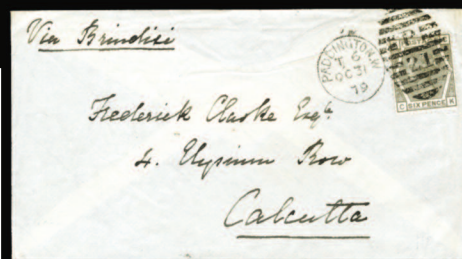 Via Brindisi
PADDINGTON.W
T 6
OC 31
79
C SIX PENCE K
Frederick Clarke Esqr
4. Elysium Row
Calcutta